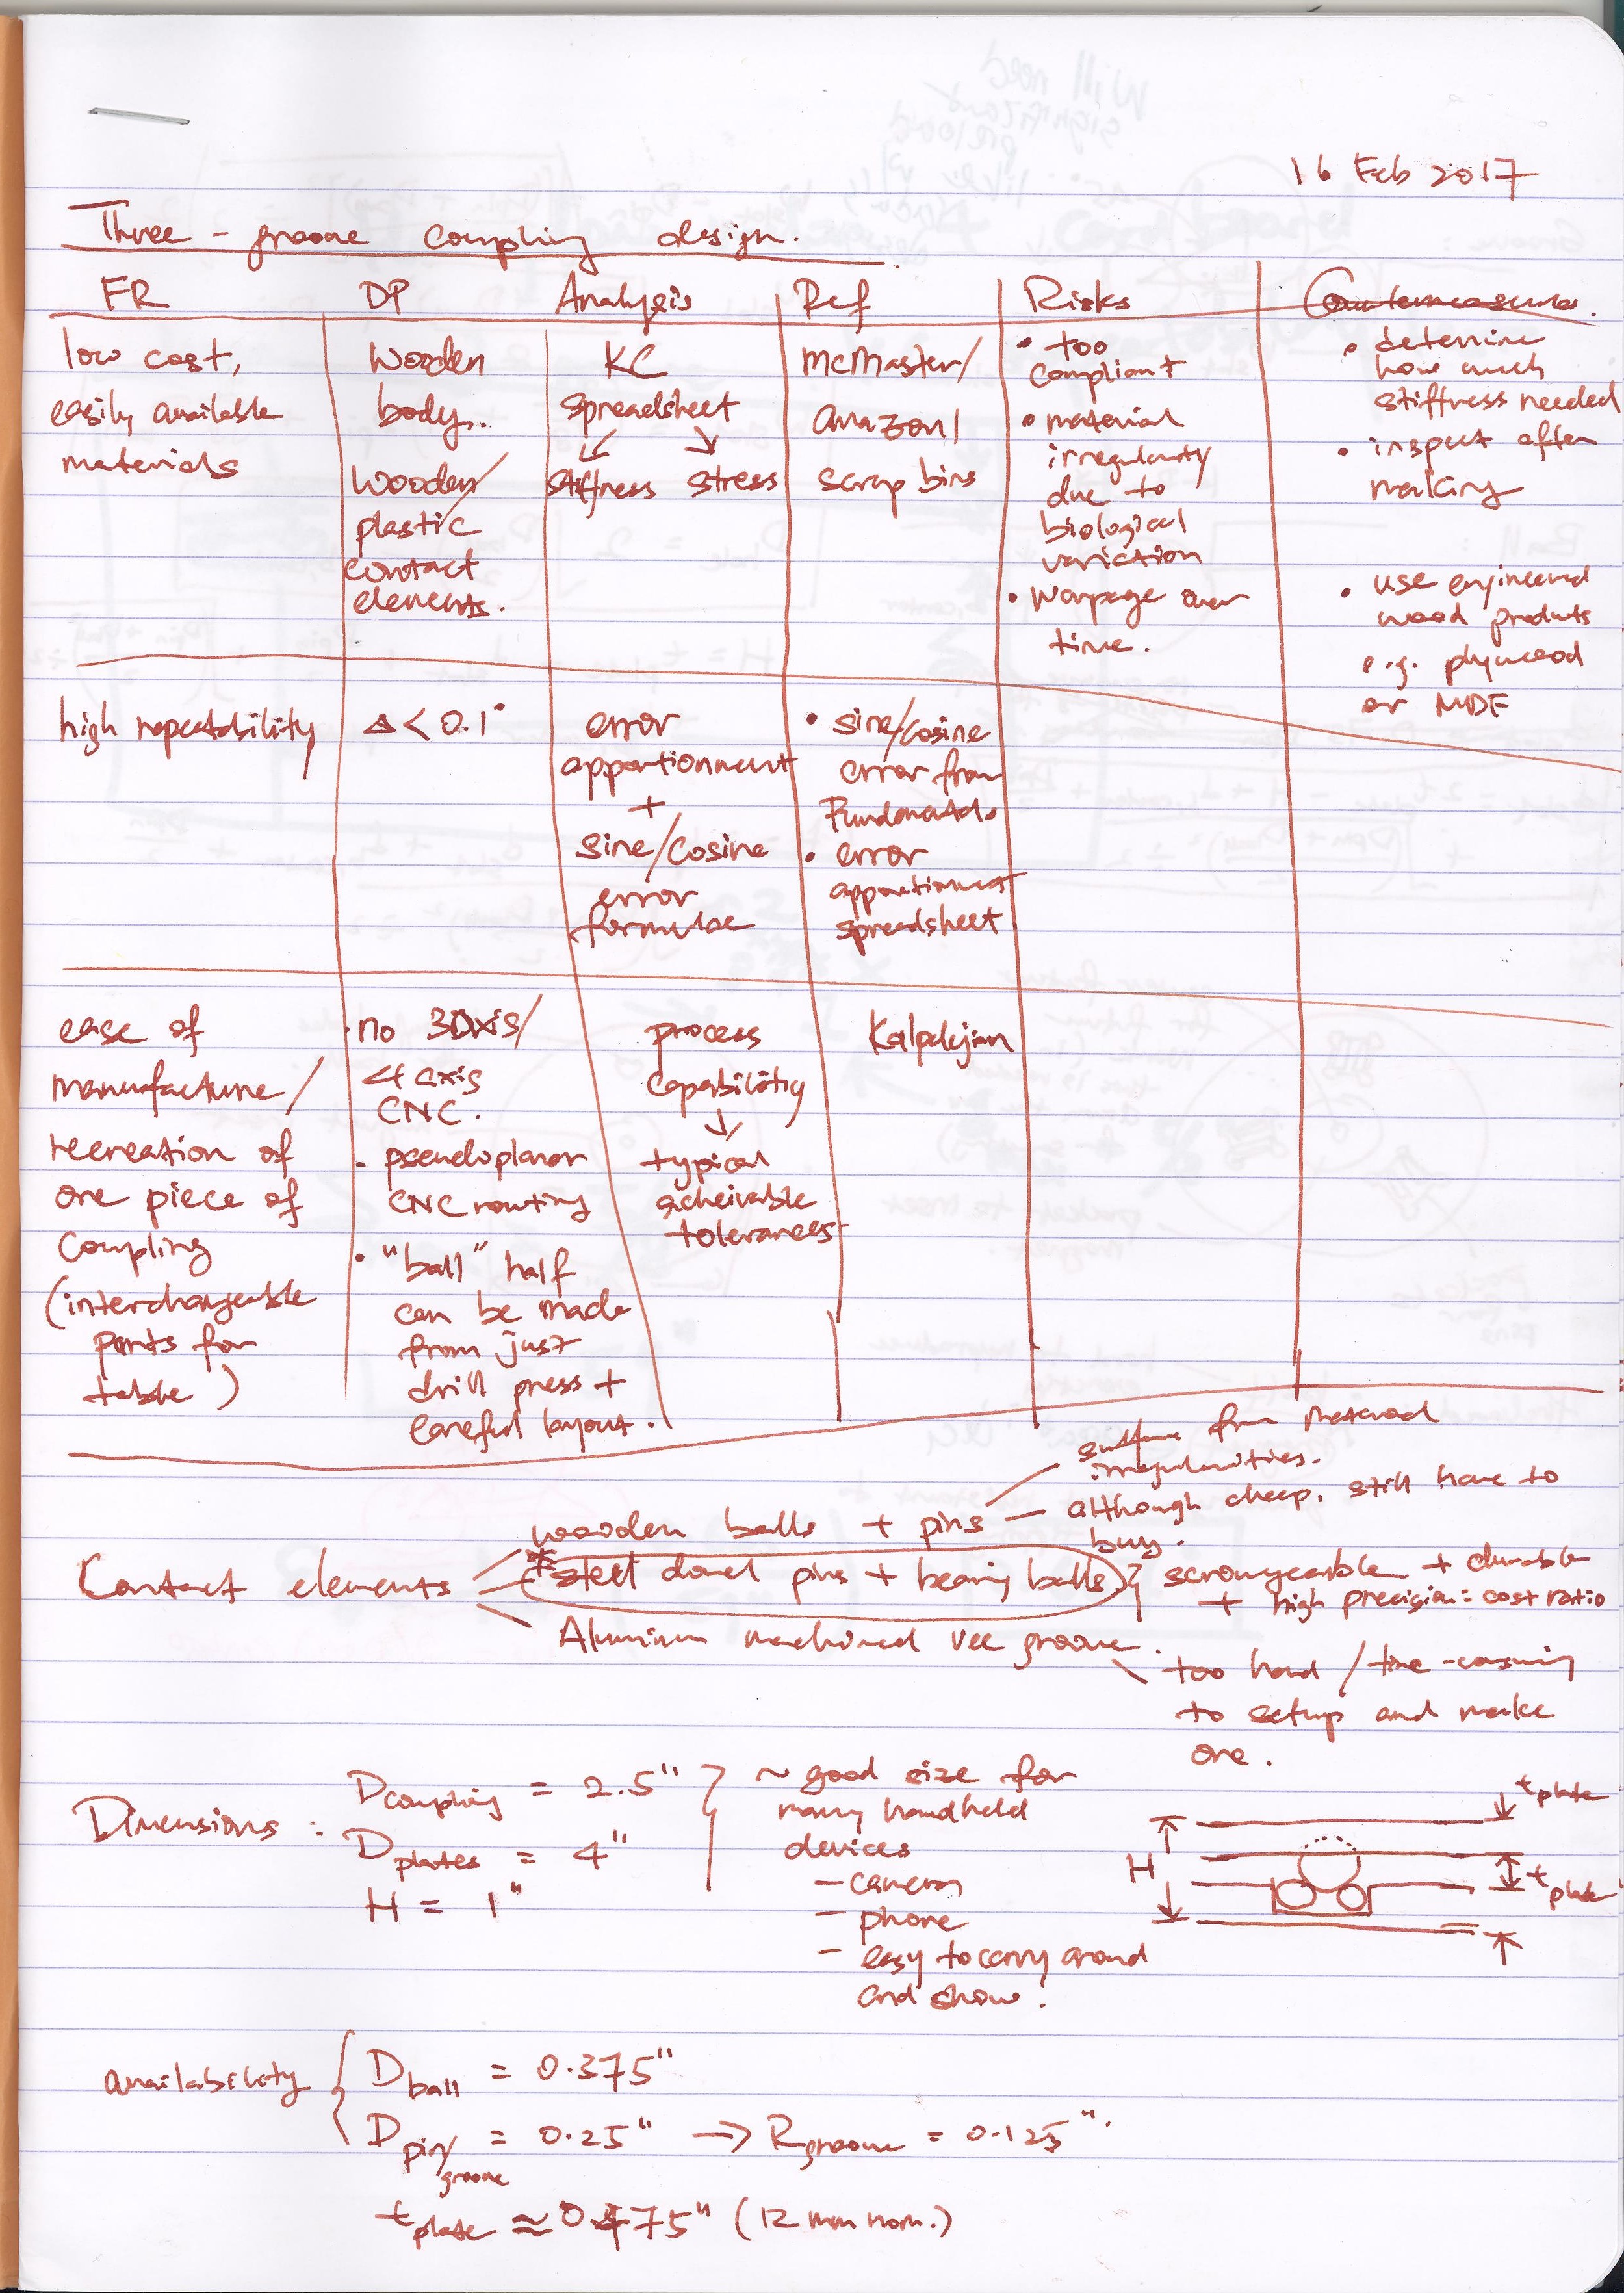 16 Feb 2017
Three-groove coupling design.
FR DP Analysis Ref Risks Countermeasures.
low cost,
easily available
materials
Wooden
body,
Wooden/
plastic
contact
elements.
KC
spreadsheet
stiffness stress
McMaster/
Amazon/
scrap bins
• too
compliant
• material
irregularity
due to
biological
variation
• warpage over
time.
• determine
how much
stiffness needed
• inspect after
making
• use engineered
wood products
e.g. plywood
or MDF
high repeatability
Δ < 0.1°
error
apportionment
+
sine/cosine
error
formulae
• sine/cosine
error from
Fundamentals
• error
apportionment
spreadsheet
ease of
manufacture/
recreation of
one piece of
coupling
(interchangeable
parts for
table)
• no 3Daxis/
4 axis
CNC.
- pseudoplanar
CNC routing
• "ball" half
can be made
from just
drill press +
careful layout.
process
capability
↓
typical
acheivable
tolerances
Kalpakjian
Contact elements
wooden balls + pins
suffer from material
irregularities.
— although cheap, still have to
buy.
* steel dowel pins + bearing balls } scroungeable + durable
+ high precision:cost ratio
Aluminum machined vee groove.
too hard/time-consuming
to setup and make
one.
Dimensions :
Dcoupling = 2.5"
Dplates = 4"
H = 1"
~ good size for
many handheld
devices
— camera
— phone
— easy to carry around
and show!
H
tplate
tplate
availability
Dball = 0.375"
Dpin/groove = 0.25" → Rgroove = 0.125".
tplate ≈ 0.475" (12 mm nom.)